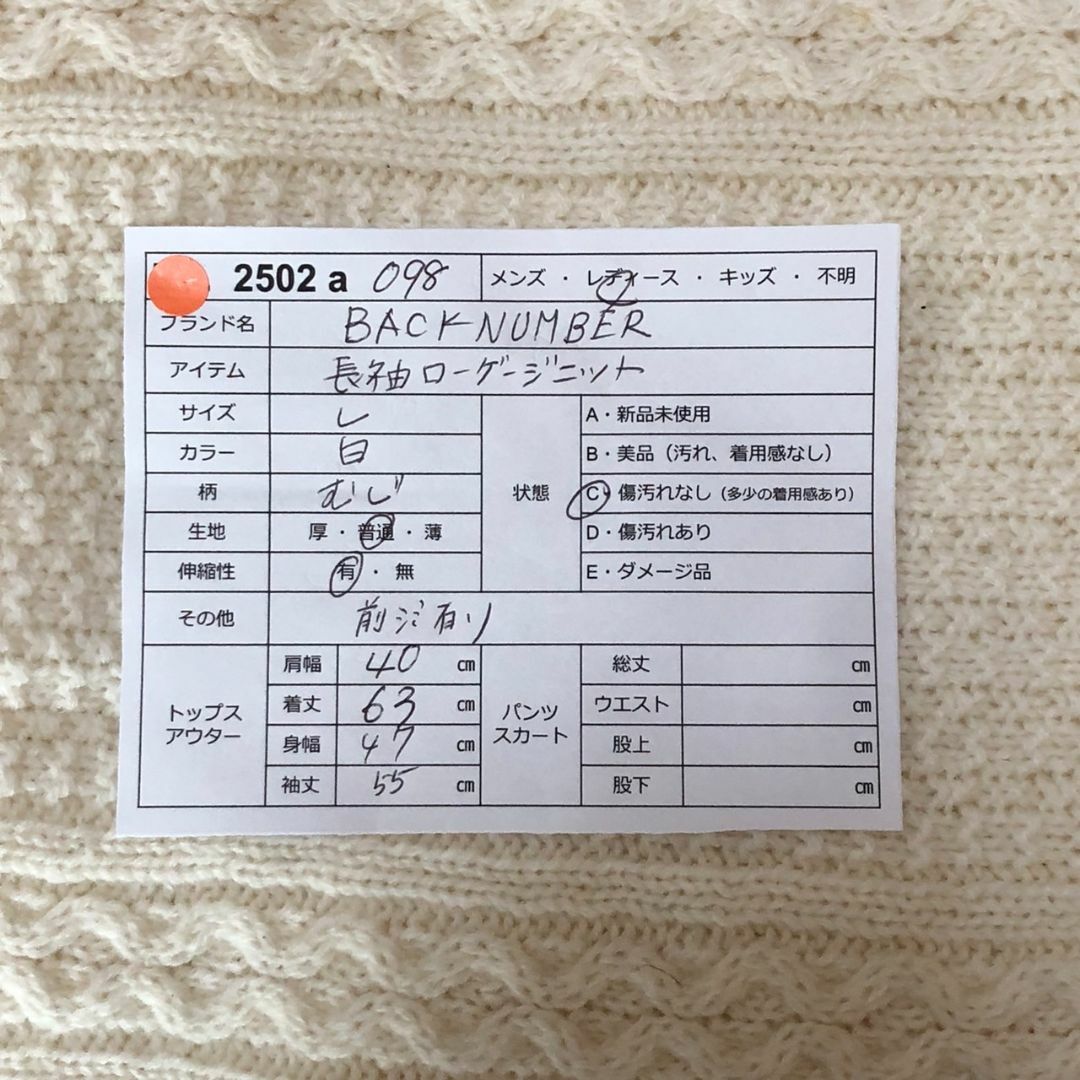 2502 a 098 メンズ ・ レディース ・ キッズ ・ 不明
ブランド名 BACK NUMBER
アイテム 長袖ローゲージニット
サイズ L
カラー 白
柄 むじ
生地 厚 ・ 普通 ・ 薄
伸縮性 有 ・ 無
状態
A・新品未使用
B・美品（汚れ、着用感なし）
C・傷汚れなし（多少の着用感あり）
D・傷汚れあり
E・ダメージ品
その他 前ジミ有り
トップス
アウター
肩幅 40 cm
着丈 63 cm
身幅 47 cm
袖丈 55 cm
パンツ
スカート
総丈 cm
ウエスト cm
股上 cm
股下 cm